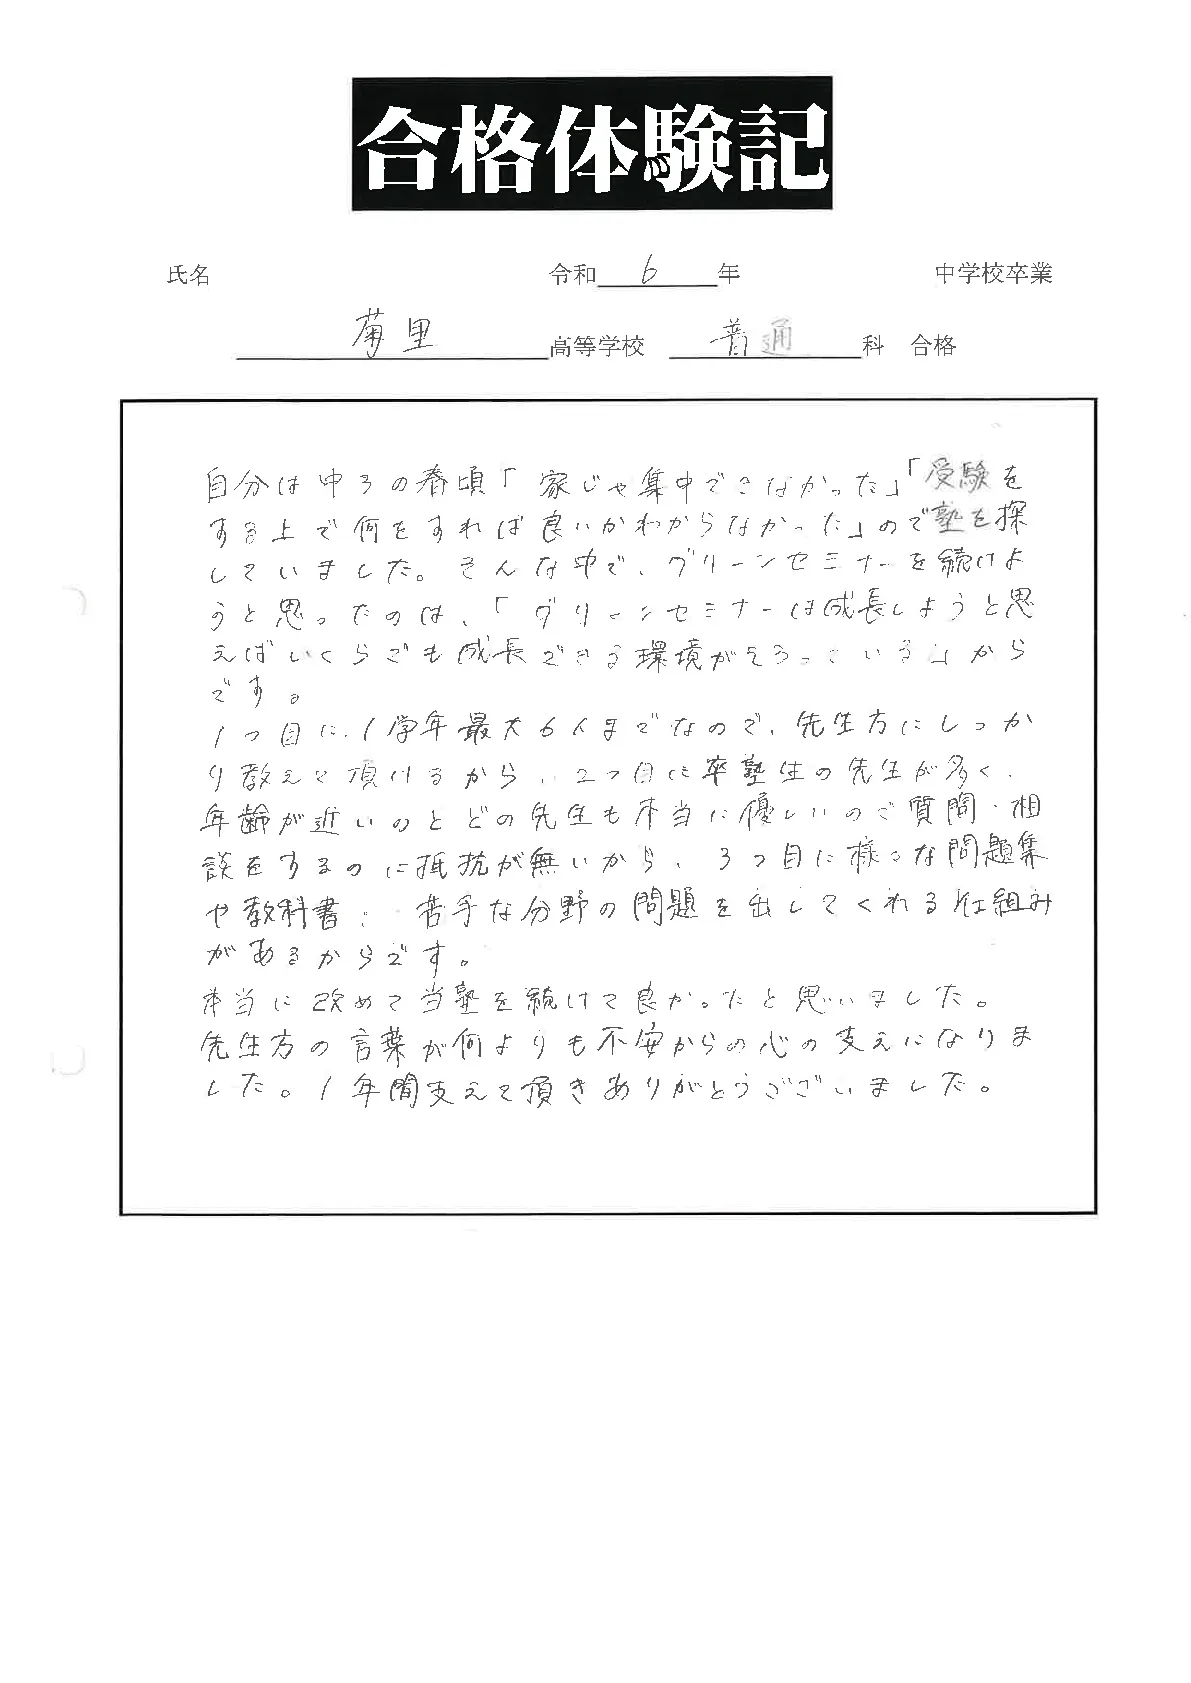 合格体験記
氏名 令和 6 年 中学校卒業
菊里 高等学校 普通 科 合格
自分は中3の春頃「家じゃ集中できなかった」「受験を
する上で何をすれば良いかわからなかった」ので塾を探
していました。そんな中で、グリーンセミナーを続けよ
うと思ったのは、「グリーンセミナーは成長しようと思
えばいくらでも成長できる環境がそろっている」から
です。
1つ目に、1学年最大6人までなので、先生方にしっか
り教えて頂けるから、2つ目に卒塾生の先生が多く、
年齢が近いのとどの先生も本当に優しいので質問・相
談をするのに抵抗が無いから、3つ目に様々な問題集
や教科書、苦手な分野の問題を出してくれる仕組み
があるからです。
本当に改めて当塾を続けて良かったと思いました。
先生方の言葉が何よりも不安からの心の支えになりま
した。1年間支えて頂きありがとうございました。